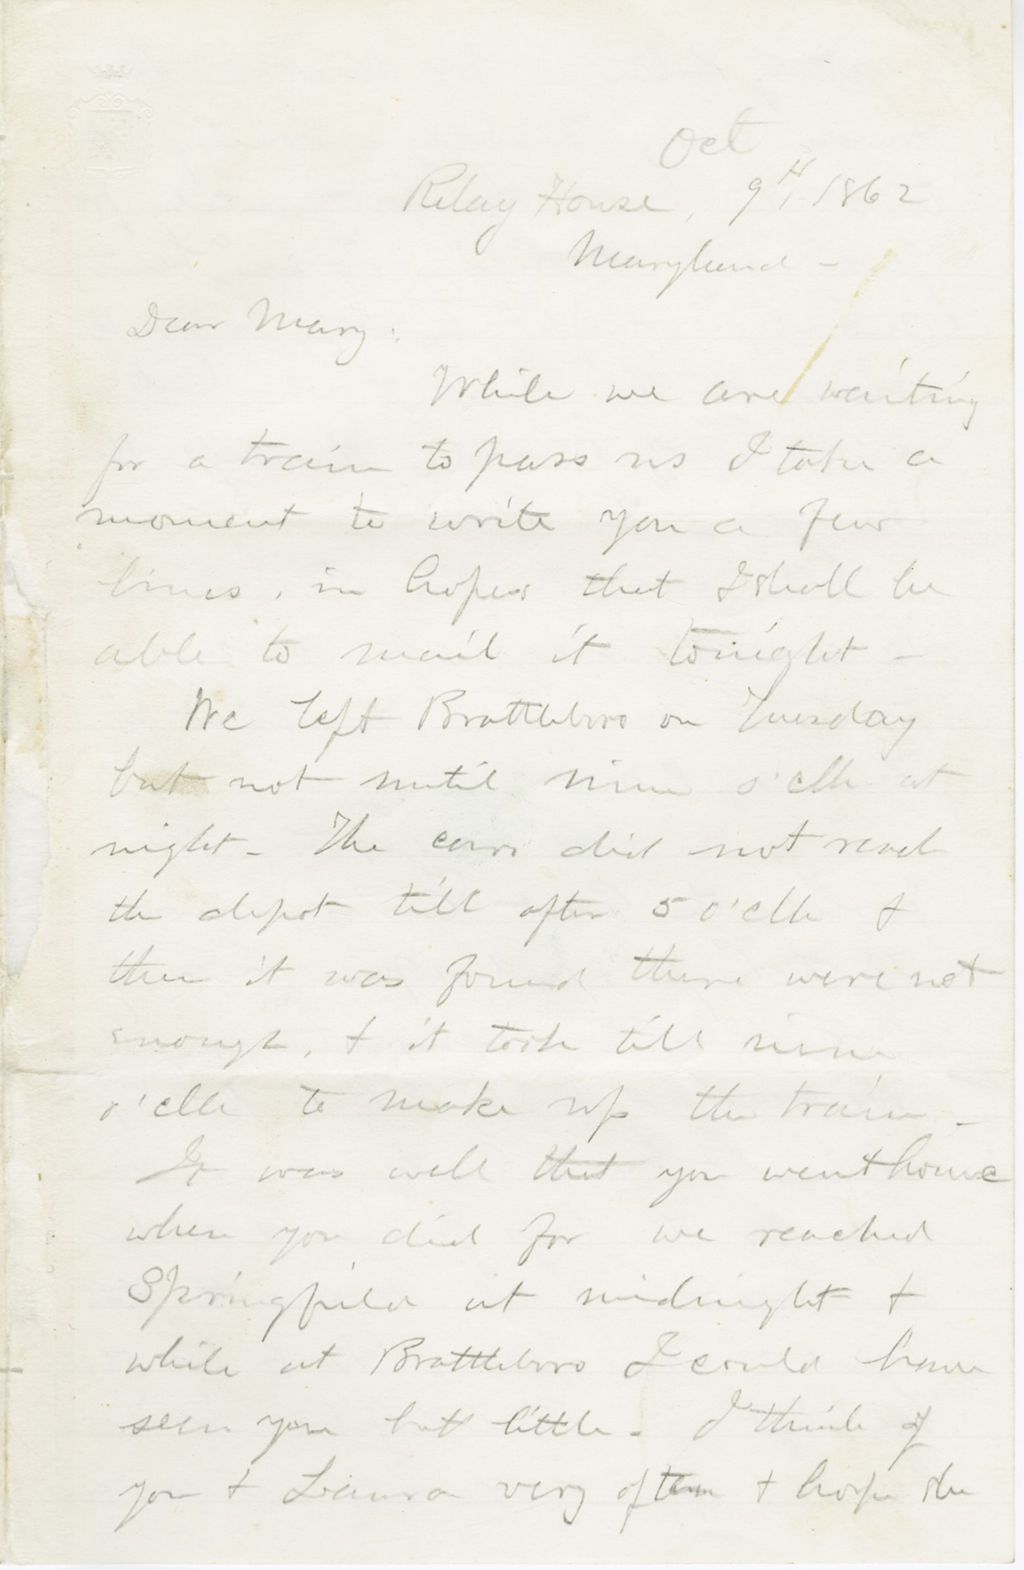 Oct
Relay House, 9th 1862
Maryland -
Dear Mary:
While we are waiting
for a train to pass us I take a
moment to write you a few
lines, in hopes that I shall be
able to mail it tonight -
We left Brattleboro on Tuesday
but not until nine o'clk at
night - The cars did not reach
the depot till after 5 o'clk &
then it was found there were not
enough, & it took till nine
o'clk to make up the train -
It was well that you went home
when you did for we reached
Springfield at midnight &
while at Brattleboro I could have
seen you but little - I think of
you & Laura very often & hope she